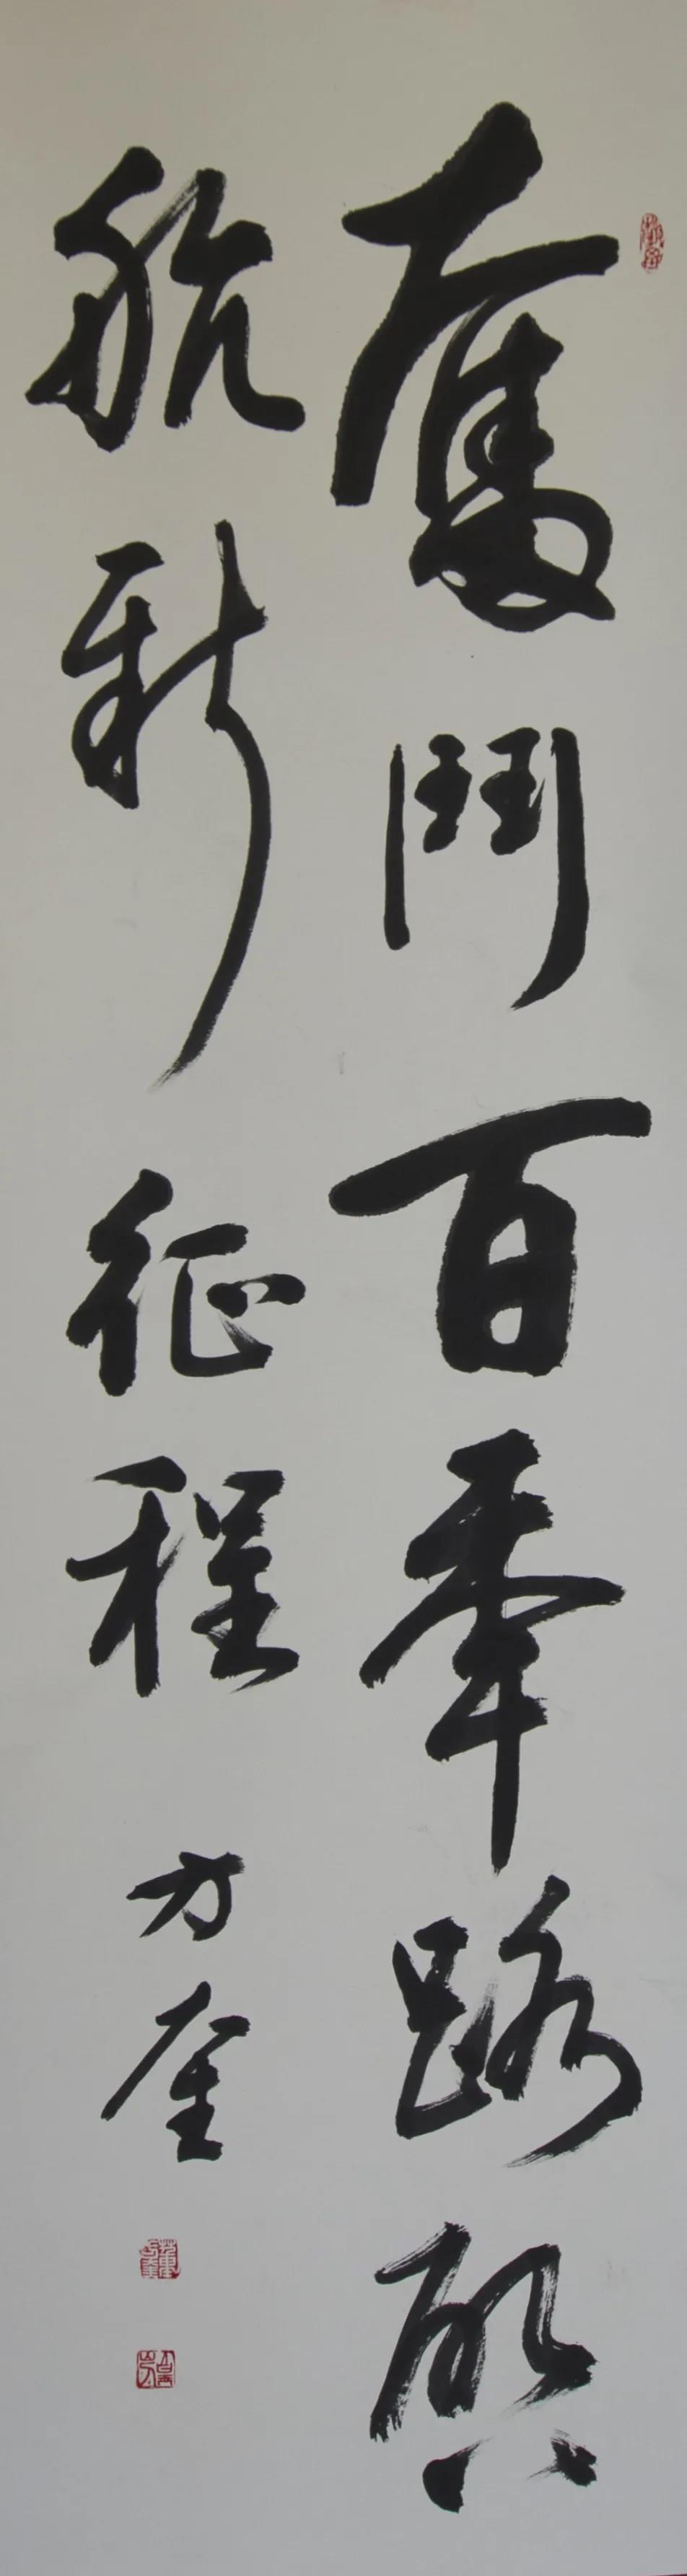 奮鬥百年路啟
航新征程
方奎